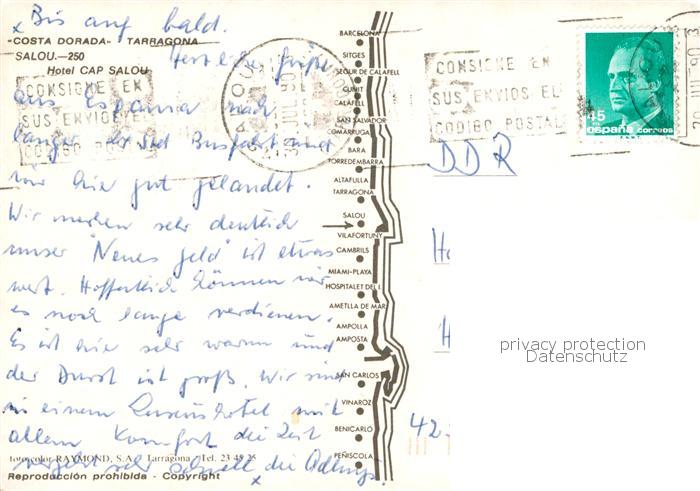 x Bis auf bald.
"COSTA DORADA" - TARRAGONA
SALOU.—250
Hotel CAP SALOU
Herzliche Grüße
aus Espania nach
langer Busfahrt sind
wir hier gut gelandet.
Wir merken sehr deutlich
unser "Neues Geld" ist etwas
wert. Hoffentlich können wir
es noch lange verdienen.
Es ist hier sehr warm und
der Durst ist groß. Wir sind
in einem Luxushotel mit
allem Komfort die Zeit
vergeht sehr schnell die Adlungs.
x
fotocolor RAYMOND, S.A. Tarragona Tel. 23 45 25
Reproducción prohibida - Copyright
BARCELONA
SITGES
SEGUR DE CALAFELL
CUNIT
CALAFELL
SAN SALVADOR
COMARRUGA
BARA
TORREDEMBARRA
ALTAFULLA
TARRAGONA
SALOU
VILAFORTUNY
CAMBRILS
MIAMI-PLAYA
HOSPITALET DEL I.
AMETLLA DE MAR
AMPOLLA
AMPOSTA
SAN CARLOS
VINAROZ
BENICARLO
PEÑISCOLA
CONSIGNE EN
SUS ENVIOS EL
CODIGO POSTAL
SALOU
30 JUL 90
CONSIGNE EN
SUS ENVIOS EL
CODIGO POSTAL
45
españa correos
DDR
42
privacy protection
Datenschutz